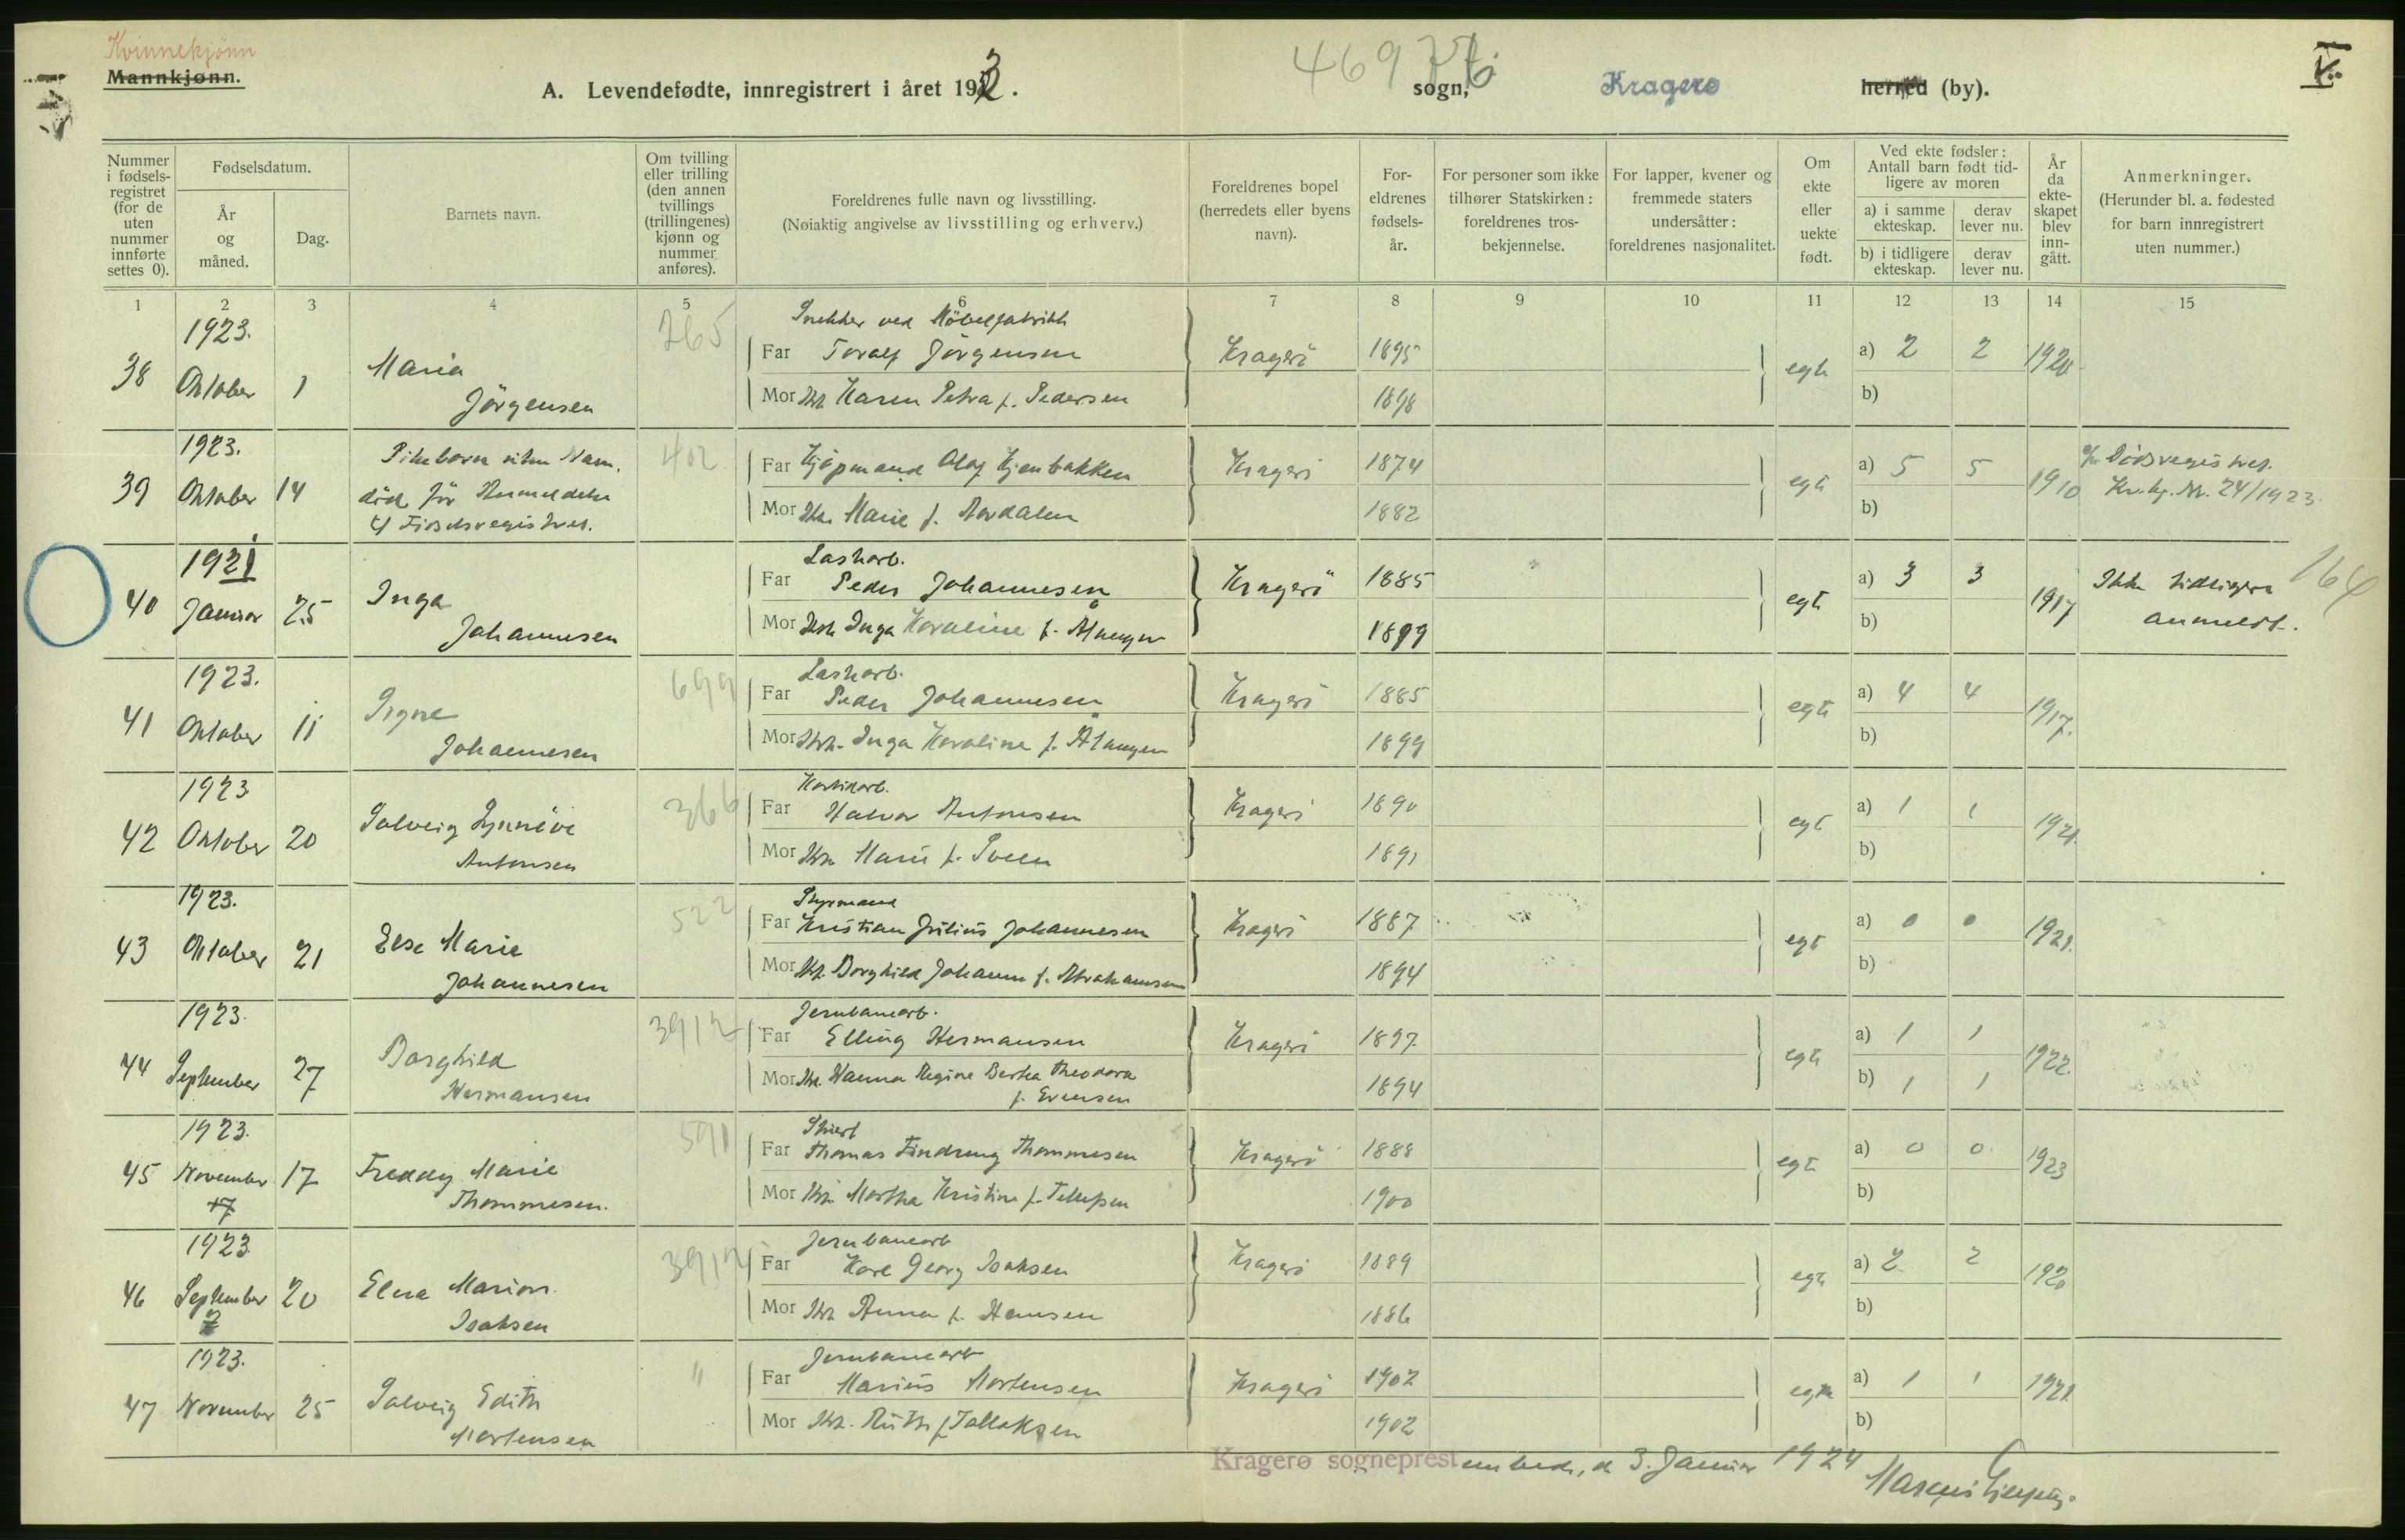 Kvinnekjønn
Mannkjønn.
A. Levendefødte, innregistrert i året 1923.
469
sogn,
Kragerø
herred (by).
V.
Nummer i fødselsregistret (for de uten nummer innførte settes 0).
Fødselsdatum.
År og måned.
Dag.
Barnets navn.
Om tvilling eller trilling (den annen tvillings (trillingenes) kjønn og nummer anføres).
Foreldrenes fulle navn og livsstilling.
(Nøiaktig angivelse av livsstilling og erhverv.)
Foreldrenes bopel (herredets eller byens navn).
Foreldrenes fødselsår.
For personer som ikke tilhører Statskirken: foreldrenes trosbekjennelse.
For lapper, kvener og fremmede staters undersåtter: foreldrenes nasjonalitet.
Om ekte eller uekte født.
Ved ekte fødsler: Antall barn født tidligere av moren
a) i samme ekteskap.
derav lever nu.
b) i tidligere ekteskap.
derav lever nu.
År da ekteskapet blev inngått.
Anmerkninger.
(Herunder bl. a. fødested for barn innregistrert uten nummer.)
1 2 3 4 5 6 7 8 9 10 11 12 13 14 15
1923.
38 Oktober 1
Maria
Jörgensen
265
Snekker ved Möbelfabrikk
Far Toralf Jörgensen
Mor Hr. Karen Petra f. Pedersen
Kragerö
1895
1898
egte
a) 2 2
b)
1920
1923.
39 Oktober 14
Pikebarn uten Navn.
död för Anmeldelse
t/ Födselsregistret.
402
Far Kjöpmand Olaf Kjenbakken
Mor Hr. Marie f. Aovdalen
Kragerö
1874
1882
egte
a) 5 5
b)
1910
Dödsregistret.
Nr. 24/1923.
1921
40 Januar 25
Inga
Johannesen
Lasharb.
Far Peder Johannesen
Mor Hr. Inga Karoline f. Ålangen
Kragerö
1885
1899
egte
a) 3 3
b)
1917
Ikke tidligere
anmeldt.
164
1923.
41 Oktober 11
Signe
Johannesen
699
Lasharb.
Far Peder Johannesen
Mor Hr. Inga Karoline f. Ålangen
Kragerö
1885
1899
egte
a) 4 4
b)
1917.
1923
42 Oktober 20
Solveig Synnöve
Antonsen
366
Far Halvor Antonsen
Mor Hr. Marie f. Sveen
Kragerö
1890
1891
egte
a) 1 1
b)
1921.
1923.
43 Oktober 21
Else Marie
Johannesen
522
Styrmand
Far Kristian Julius Johannesen
Mor Hr. Borghild Johanne f. Abrahamsen
Kragerö
1887
1894
egte
a) 0 0
b)
1921.
1923.
44 September 27
Borghild
Hermansen
3912
Jernbanearb.
Far Elling Hermansen
Mor Hr. Hanna Regine Bertha Theodora
f. Evensen
Kragerö
1897
1894
egte
a) 1 1
b) 1 1
1922.
1923.
45 November 17
17
Freddy Marie
Thommesen.
591
Far Thomas Findreng Thommesen
Mor Hr. Martha Kristine f. Tellefsen
Kragerö
1888
1900
egte
a) 0 0
b)
1923
1923
46 September 20
Elna Marion
Isaksen
3912
Jernbanearb
Far Karl Georg Isaksen
Mor Hr. Anna f. Hansen
Kragerö
1889
1886
egte
a) 2 2
b)
1920
1923.
47 November 25
Solveig Edith
Mortensen
"
Jernbanearb
Far Marius Mortensen
Mor Hr. Ruth f. Tallaksen
Kragerö
1902
1902
egte
a) 1 1
b)
1921.
Kragerø sogneprestembede, d 3. Januar 1924